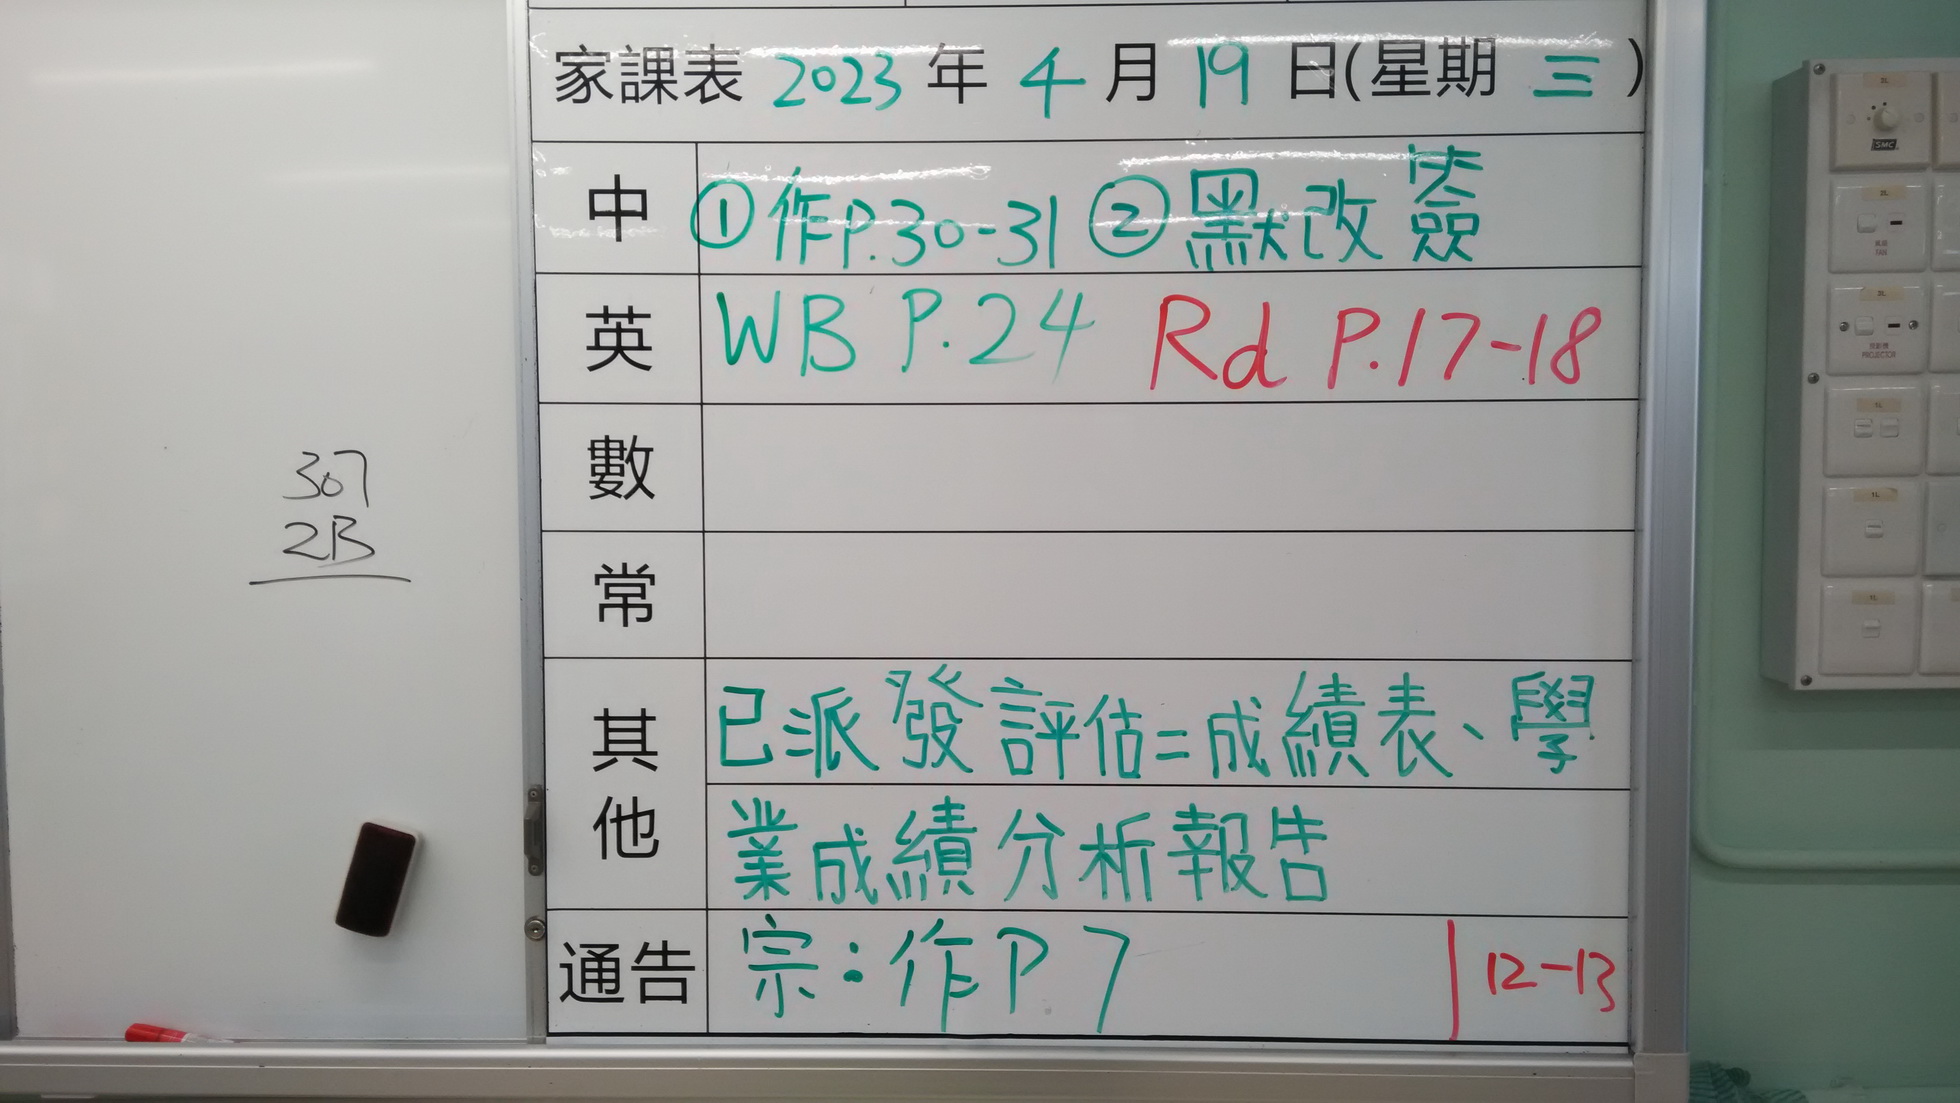 家課表 2023 年 4 月 19 日(星期 三)
中 ①作P.30-31 ②默改簽
英 WB P.24 Rd P.17-18
數
常
其他 已派發評估=成績表、學
業成績分析報告
通告 宗:作P.7 | 12-13
307
2B
SMC
FAN
PROJECTOR